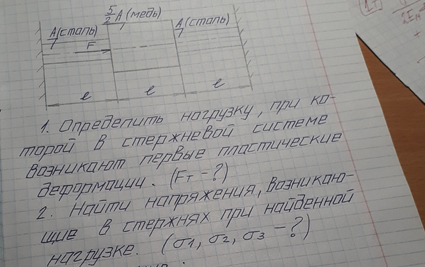 5/2 A (медь)
A(сталь) A(сталь)
F
l l l
1. Определить нагрузку, при ко-
торой в стержневой системе
возникают первые пластические
деформации. (Fт - ?)
2. Найти напряжения, возникаю-
щие в стержнях при найденной
нагрузке. (σ1, σ2, σ3 - ?)